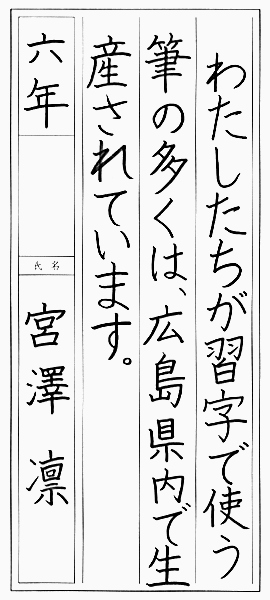 わたしたちが習字で使う
筆の多くは、広島県内で生
産されています。
六年
氏名
宮澤凛